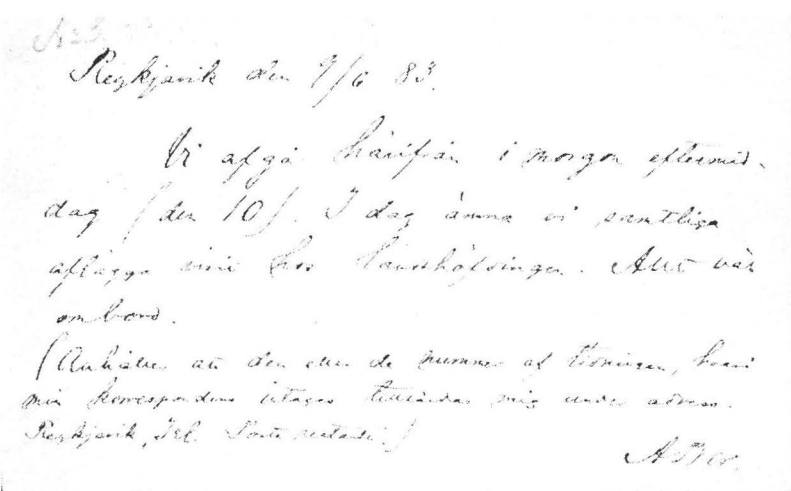 No 3.
Reykjavik den 9/6 83.
Vi afgå härifrån i morgon eftermid-
dag (den 10). I dag ämna vi samtliga
aflägga visit hos landshöfdingen. Allt väl
ombord.
(Anhåller att den eller de nummer af tidningen, hvari
min korrespondens intages tillsändas mig under adress.
Reykjavik, Isl. Poste restante.)